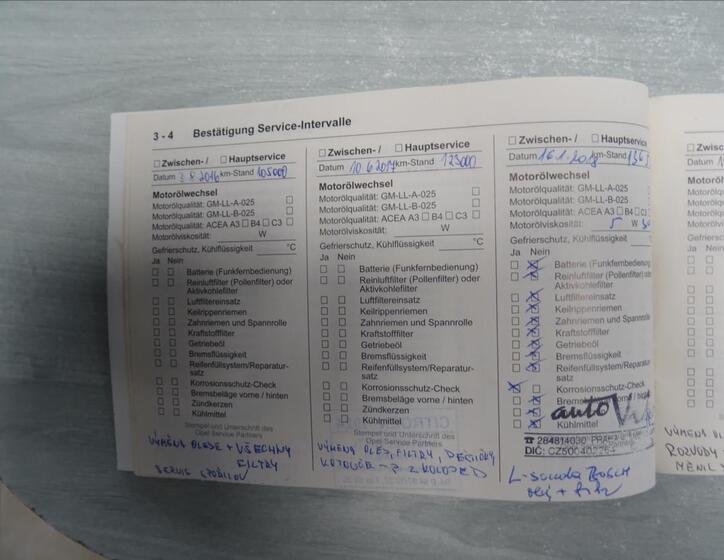 3 - 4 Bestätigung Service-Intervalle
☐ Zwischen- / ☐ Hauptservice
Datum 3 8 2016 km-Stand 105000
Motorölwechsel
Motorölqualität: GM-LL-A-025 ☐
Motorölqualität: GM-LL-B-025 ☐
Motorölqualität: ACEA A3 ☐ B4 ☐ C3 ☐
Motorölviskosität: W
Gefrierschutz, Kühlflüssigkeit °C
Ja Nein
☐ ☐ Batterie (Funkfernbedienung)
☐ ☐ Reinluftfilter (Pollenfilter) oder
Aktivkohlefilter
☐ ☐ Luftfiltereinsatz
☐ ☐ Keilrippenriemen
☐ ☐ Zahnriemen und Spannrolle
☐ ☐ Kraftstofffilter
☐ ☐ Getriebeöl
☐ ☐ Bremsflüssigkeit
☐ ☐ Reifenfüllsystem/Reparatur-
satz
☐ ☐ Korrosionsschutz-Check
☐ ☐ Bremsbeläge vorne / hinten
☐ ☐ Zündkerzen
☐ ☐ Kühlmittel
Stempel und Unterschrift des
Opel Service Partners
VÝMĚNA OLEJE + VŠECHNY
FILTRY
SERVIS
☐ Zwischen- / ☐ Hauptservice
Datum 10 6 2017 km-Stand 123000
Motorölwechsel
Motorölqualität: GM-LL-A-025 ☐
Motorölqualität: GM-LL-B-025 ☐
Motorölqualität: ACEA A3 ☐ B4 ☐ C3 ☐
Motorölviskosität: W
Gefrierschutz, Kühlflüssigkeit °C
Ja Nein
☐ ☐ Batterie (Funkfernbedienung)
☐ ☐ Reinluftfilter (Pollenfilter) oder
Aktivkohlefilter
☐ ☐ Luftfiltereinsatz
☐ ☐ Keilrippenriemen
☐ ☐ Zahnriemen und Spannrolle
☐ ☐ Kraftstofffilter
☐ ☐ Getriebeöl
☐ ☐ Bremsflüssigkeit
☐ ☐ Reifenfüllsystem/Reparatur-
satz
☐ ☐ Korrosionsschutz-Check
☐ ☐ Bremsbeläge vorne / hinten
☐ ☐ Zündkerzen
☐ ☐ Kühlmittel
Stempel und Unterschrift des
Opel Service Partners
VÝMĚNA OLEJ, FILTRY, DESTIČKY,
☐ Zwischen- / ☐ Hauptservice
Datum 16.1.2018 km-Stand
Motorölwechsel
Motorölqualität: GM-LL-A-025
Motorölqualität: GM-LL-B-025
Motorölqualität: ACEA A3 ☐ B4 ☐ C3
Motorölviskosität: 5 W
Gefrierschutz, Kühlflüssigkeit
Ja Nein
☐ ☒ Batterie (Funkfernbedienung)
☐ ☒ Reinluftfilter (Pollenfilter)
Aktivkohlefilter
☐ ☒ Luftfiltereinsatz
☐ ☒ Keilrippenriemen
☐ ☒ Zahnriemen und Spannrolle
☐ ☒ Kraftstofffilter
☐ ☒ Getriebeöl
☐ ☒ Bremsflüssigkeit
☐ ☒ Reifenfüllsystem/Reparatur-
satz
☒ ☐ Korrosionsschutz-Check
☐ ☒
☐ ☒ auto
☐ ☒ Kühlmittel
☎ 284814030
DIČ:
L-sonda BOSCH
olej + filtr
VÝMĚNA
ROZVODY